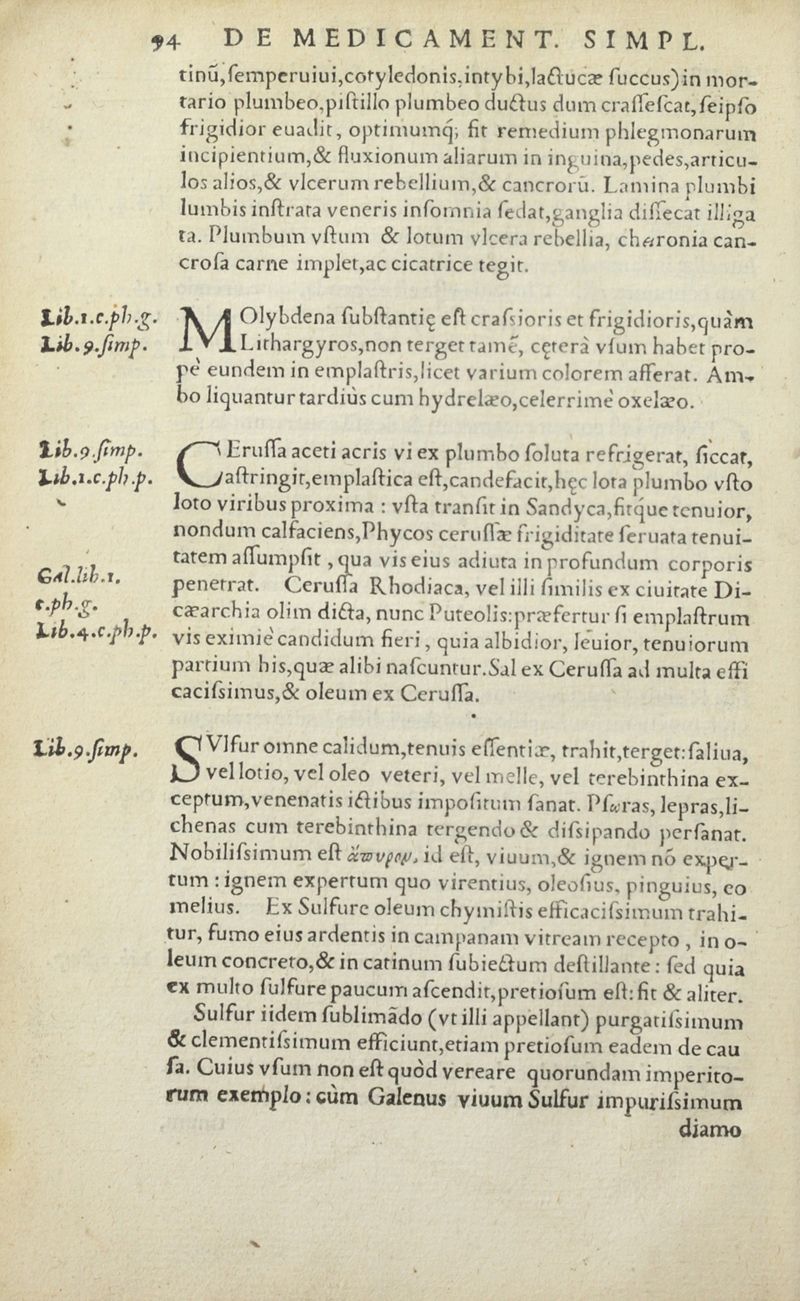 94 DE MEDICAMENT. SIMPL.
tinū,ſemperuiui,cotyledonis,intybi,lactucæ ſuccus)in mor-
tario plumbeo,piſtillo plumbeo ductus dum craſſeſcat,ſeipſo
frigidior euadit, optimumq́; fit remedium phlegmonarum
incipientium,& fluxionum aliarum in inguina,pedes,articu-
los alios,& vlcerum rebellium,& cancrorū. Lamina plumbi
lumbis inſtrata veneris inſomnia ſedat,ganglia diſſecat illiga
ta. Plumbum vſtum & lotum vlcera rebellia, chæronia can-
croſa carne implet,ac cicatrice tegit.
Lib.1.c.ph.g.
Lib.9.ſimp.
MOlybdena ſubſtantię eſt craſsioris et frigidioris,quàm
Lithargyros,non terget tamē, cęterà vſum habet pro-
pè eundem in emplaſtris,licet varium colorem afferat. Am-
bo liquantur tardiùs cum hydrelæo,celerrimè oxelæo.
Lib.9.ſimp.
Lib.1.c.ph.p.
CEruſſa aceti acris vi ex plumbo ſoluta refrigerat, ſiccat,
aſtringit,emplaſtica eſt,candefacit,hęc lota plumbo vſto
loto viribus proxima : vſta tranſit in Sandyca,fitque tenuior,
nondum calfaciens,Phycos ceruſſæ frigiditate ſeruata tenui-
tatem aſſumpſit , qua vis eius adiuta in profundum corporis
Gal.lib.1.
c.ph.g.
Lib.4.c.ph.p.
penetrat. Ceruſſa Rhodiaca, vel illi ſimilis ex ciuitate Di-
cæarchia olim dicta, nunc Puteolis:præfertur ſi emplaſtrum
vis eximiè candidum fieri , quia albidior, leuior, tenuiorum
partium his,quæ alibi naſcuntur.Sal ex Ceruſſa ad multa effi
caciſsimus,& oleum ex Ceruſſa.
Lib.9.ſimp.
SVlfur omne calidum,tenuis eſſentiæ, trahit,terget:ſaliua,
vel lotio, vel oleo veteri, vel melle, vel terebinthina ex-
ceptum,venenatis ictibus impoſitum ſanat. Pſωras, lepras,li-
chenas cum terebinthina tergendo & diſsipando perſanat.
Nobiliſsimum eſt ἄπυρον, id eſt, viuum,& ignem nō exper-
tum : ignem expertum quo virentius, oleoſius, pinguius, eo
melius. Ex Sulfure oleum chymiſtis efficaciſsimum trahi-
tur, fumo eius ardentis in campanam vitream recepto , in o-
leum concreto,& in catinum ſubiectum deſtillante : ſed quia
ex multo ſulfure paucum aſcendit,pretioſum eſt: fit & aliter.
Sulfur iidem ſublimādo (vt illi appellant) purgatiſsimum
& clementiſsimum efficiunt,etiam pretioſum eadem de cau
ſa. Cuius vſum non eſt quòd vereare quorundam imperito-
rum exemplo : cùm Galenus viuum Sulfur impuriſsimum
diamo